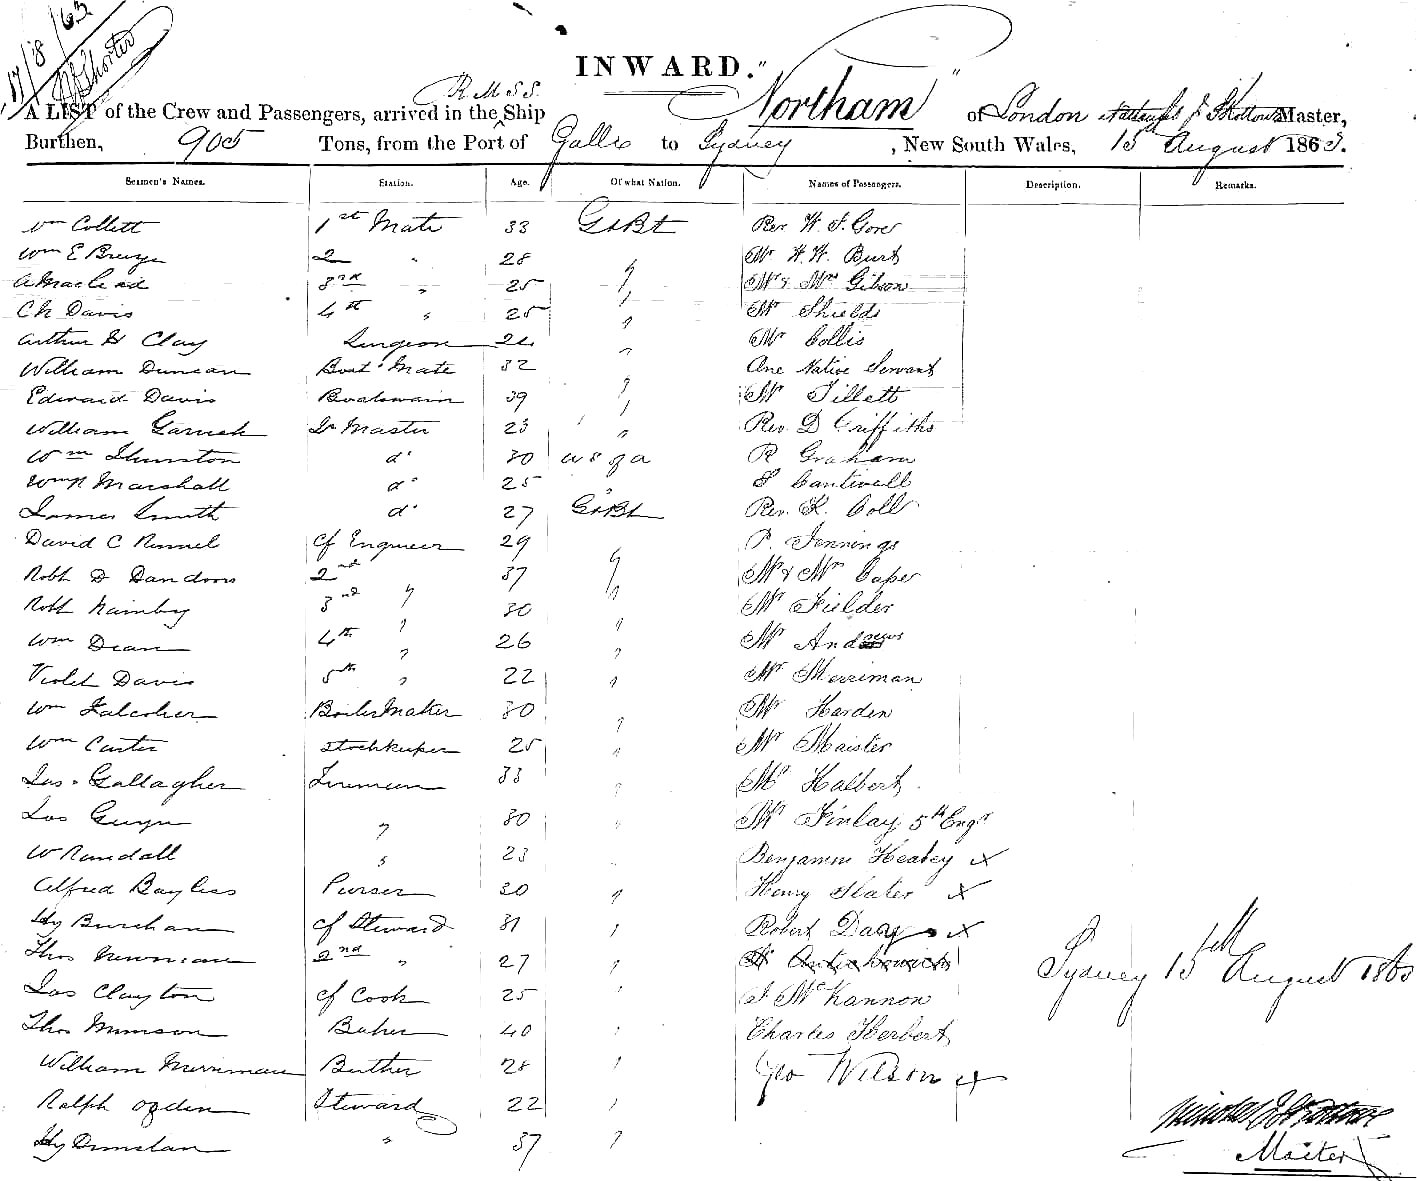 17/8/63
Shorter
INWARD.
R M S S.
A LIST of the Crew and Passengers, arrived in the Ship "Northam" of London Master,
Burthen, 905 Tons, from the Port of Galle to Sydney, New South Wales, 15 August 1863.
Seamen's Names. Station. Age. Of what Nation. Names of Passengers. Description. Remarks.
Wm Collett 1st Mate 33 Gt Bt Rev W. J. Gore
Wm E 2 " 28 " Mr W. W. Burt
A Macleod 3rd " 25 " Mr & Mrs Gibson
Ch Davis 4th " 25 " Mr Shields
Arthur G Clay Surgeon 24 " Mr Collis
William Duncan Boats Mate 32 " One Native Servant
Edward Davis Boatswain 39 " Mr Tillett
William Qr Master 23 " Rev. D Griffiths
Wm do 30 U S of A R Graham
Wm Marshall do 25 " S
James Smith do 27 Gt Bt Rev. K. Coll
David C Cf Engineer 29 " P. Jennings
Robt D 2nd 37 " Mr & Mrs Caper
Robt 3rd " 30 " Mr Fielder
Wm Dean 4th " 26 " Mr Andrews
Violet Davis 5th " 22 " Mr Merriman
Wm Falconer Boiler Maker 30 " Mr Harden
Wm Carter Storekeeper 25 " Mr Maister
Jas. Gallagher Fireman 33 " Mr Halbert
Jas " 30 " Mr Finlay 5th Engr
W Randall " 23 " Benjamin Heabey x
Alfred Bayliss Purser 30 " Henry Slater x
Hy Burcham Cf Steward 31 " Robert Day x
Thos Newman 2nd " 27 "
Jas Clayton Cf Cook 25 " J McKannon
Thos Baker 40 " Charles Herbert
William Merriman Butcher 28 " Geo Wilson x
Ralph Ogden Steward 22 "
Hy Dunstan " 37 "
Sydney 15th August 1863
Master